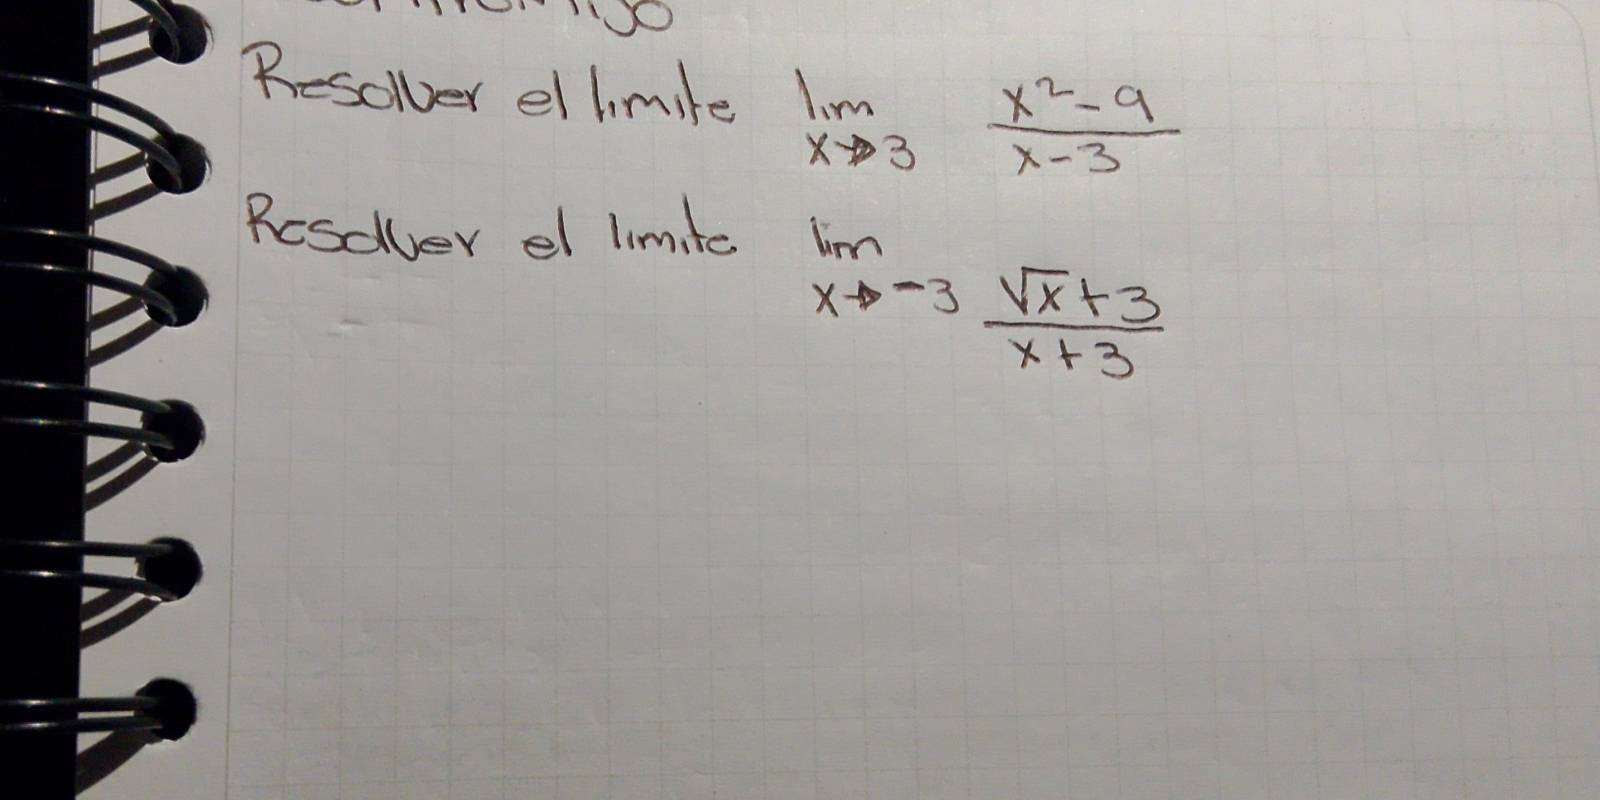 Resolver el limite lim x→3 x²-9 / x-3
Resolver el limite lim x→-3 √x+3 / x+3